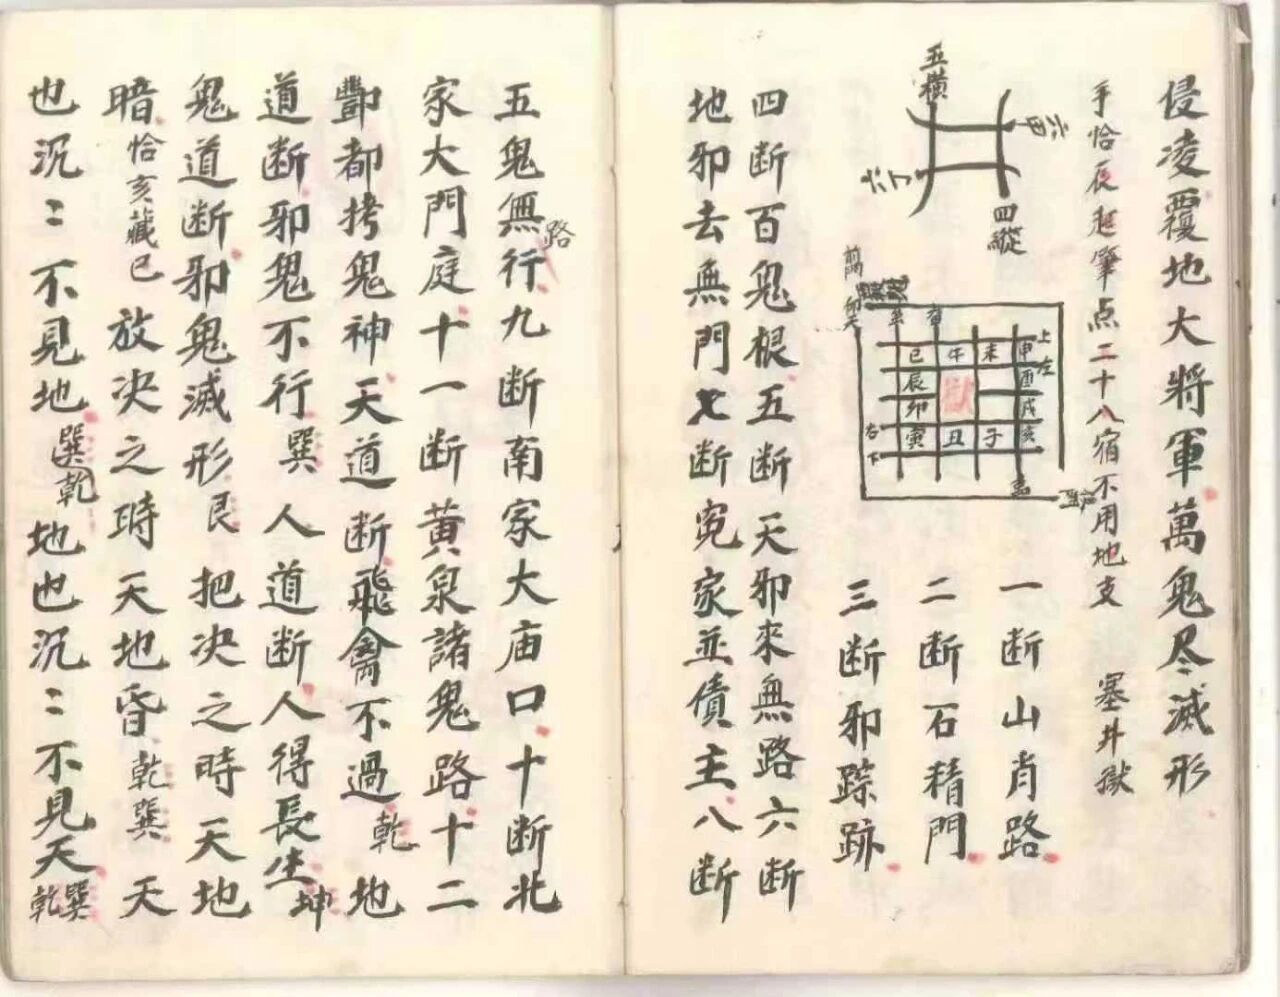 侵凌覆地大將軍萬鬼尽滅形
手恰辰起筆点二十八宿不用地支 塞井獄
五橫
六甲
六丁
四縱
上
左
巳 午 未 申
辰 酉
卯 戌
寅 丑 子 亥
獄
右
下
一断山肖路
二断石精門
三断邪踪跡
四断百鬼根五断天邪來無路六断
地邪去無門七断冤家並債主八断
五鬼無路行九断南家大庙口十断北
家大門庭十一断黃泉諸鬼路十二
酆都拷鬼神天道断飛禽不過乾地
道断邪鬼不行巽人道断人得長生坤
鬼道断邪鬼滅形艮把决之時天地
暗恰亥藏巳放决之時天地昏乾巽天
也沉::不見地巽乾地也沉::不見天乾巽